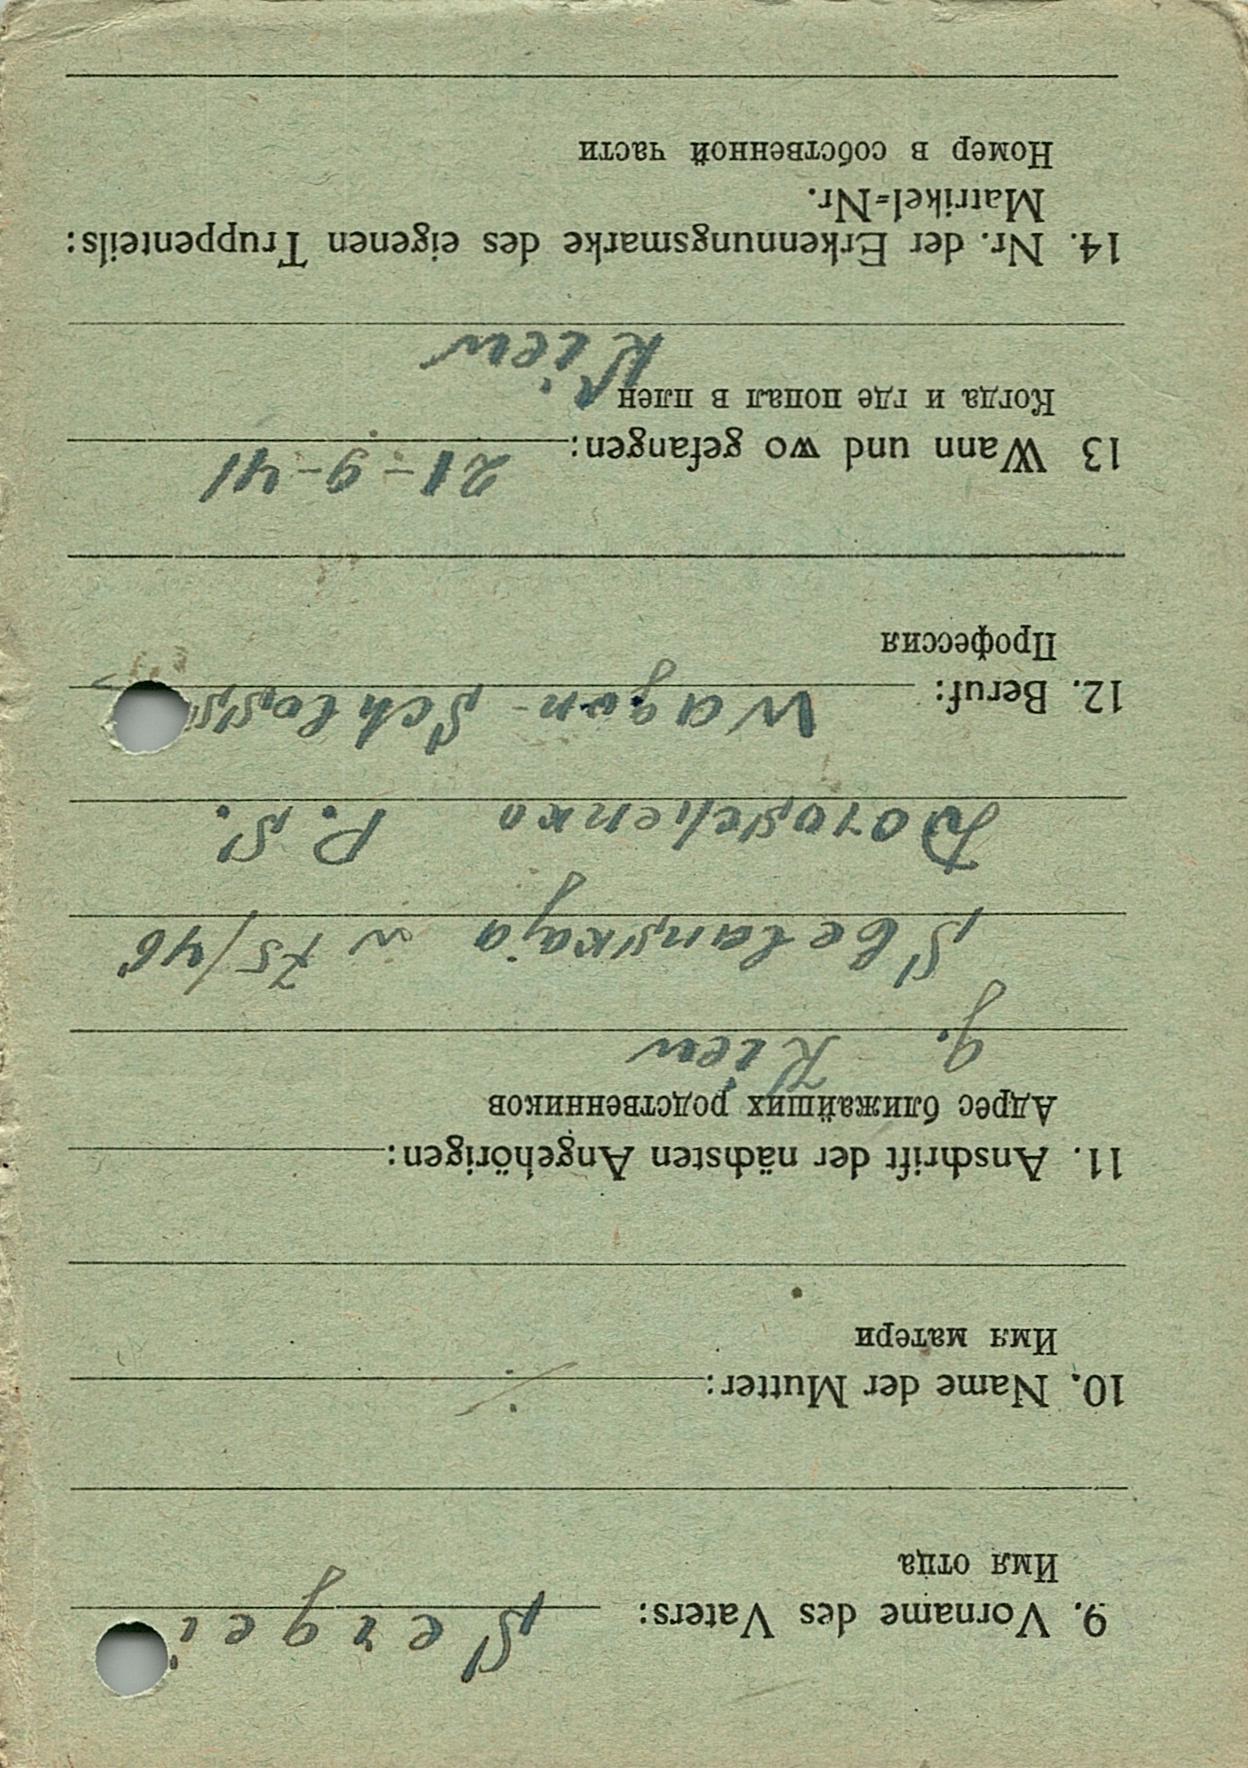 9. Vorname des Vaters: Sergei
Имя отца
10. Name der Mutter: ./.
Имя матери
11. Anschrift der nächsten Angehörigen:
Адрес ближайших родственников
g. Kiew
75/46
Doroschenko P. S.
12. Beruf: Wagon-Schloss
Профессия
13 Wann und wo gefangen: 21-9-41
Когда и где попал в плен
Kiew
14. Nr. der Erkennungsmarke des eigenen Truppenteils:
Matrikel-Nr.
Номер в собственной части